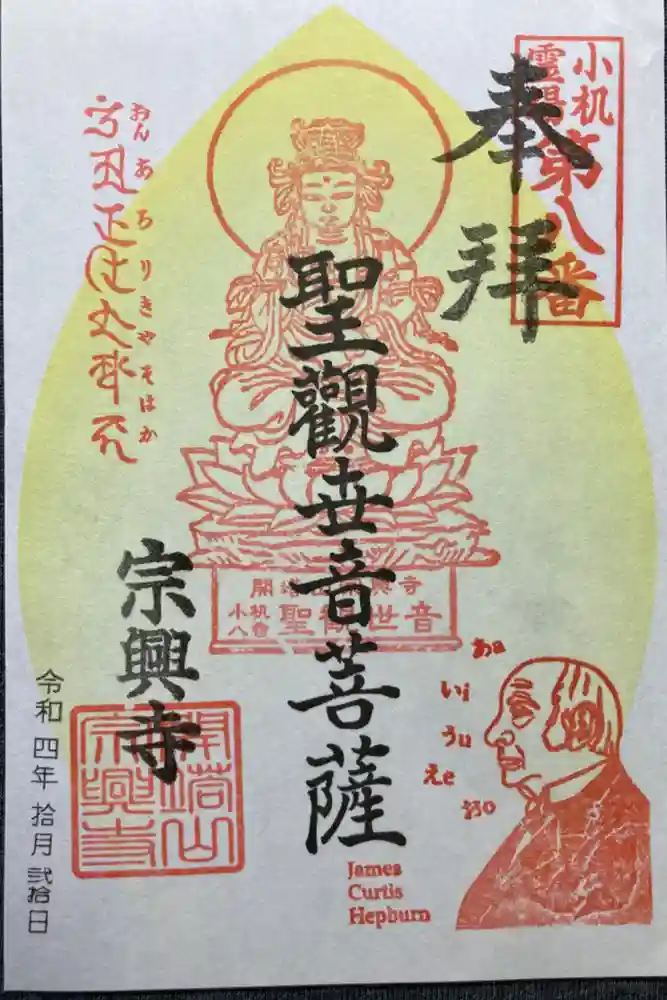 小机
霊場
第八番
奉拝
聖觀世音菩薩
おんあろりきやそはか
開塔山宗興寺
小机
八番
聖觀世音
宗興寺
開塔山
宗興寺
令和四年拾月弐拾日
あa
いi
うu
えe
おo
James
Curtis
Hepburn